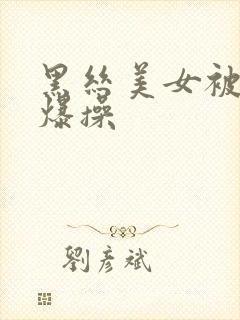 黑丝美女被
爆操
劉彥斌